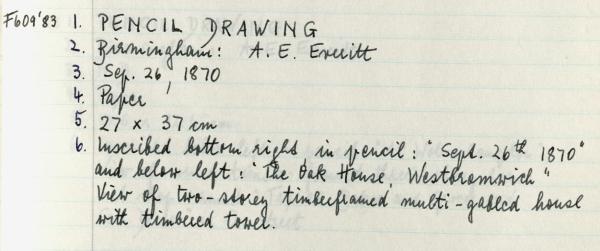 F609'83 1. PENCIL DRAWING
2. Birmingham: A. E. Everitt
3. Sep. 26, 1870
4. Paper
5. 27 x 37 cm
6. Inscribed bottom right, in pencil: "Sept. 26th 1870"
and below left: "The Oak House, Westbromwich"
View of two-storey timberframed multi-gabled house
with timbered tower.